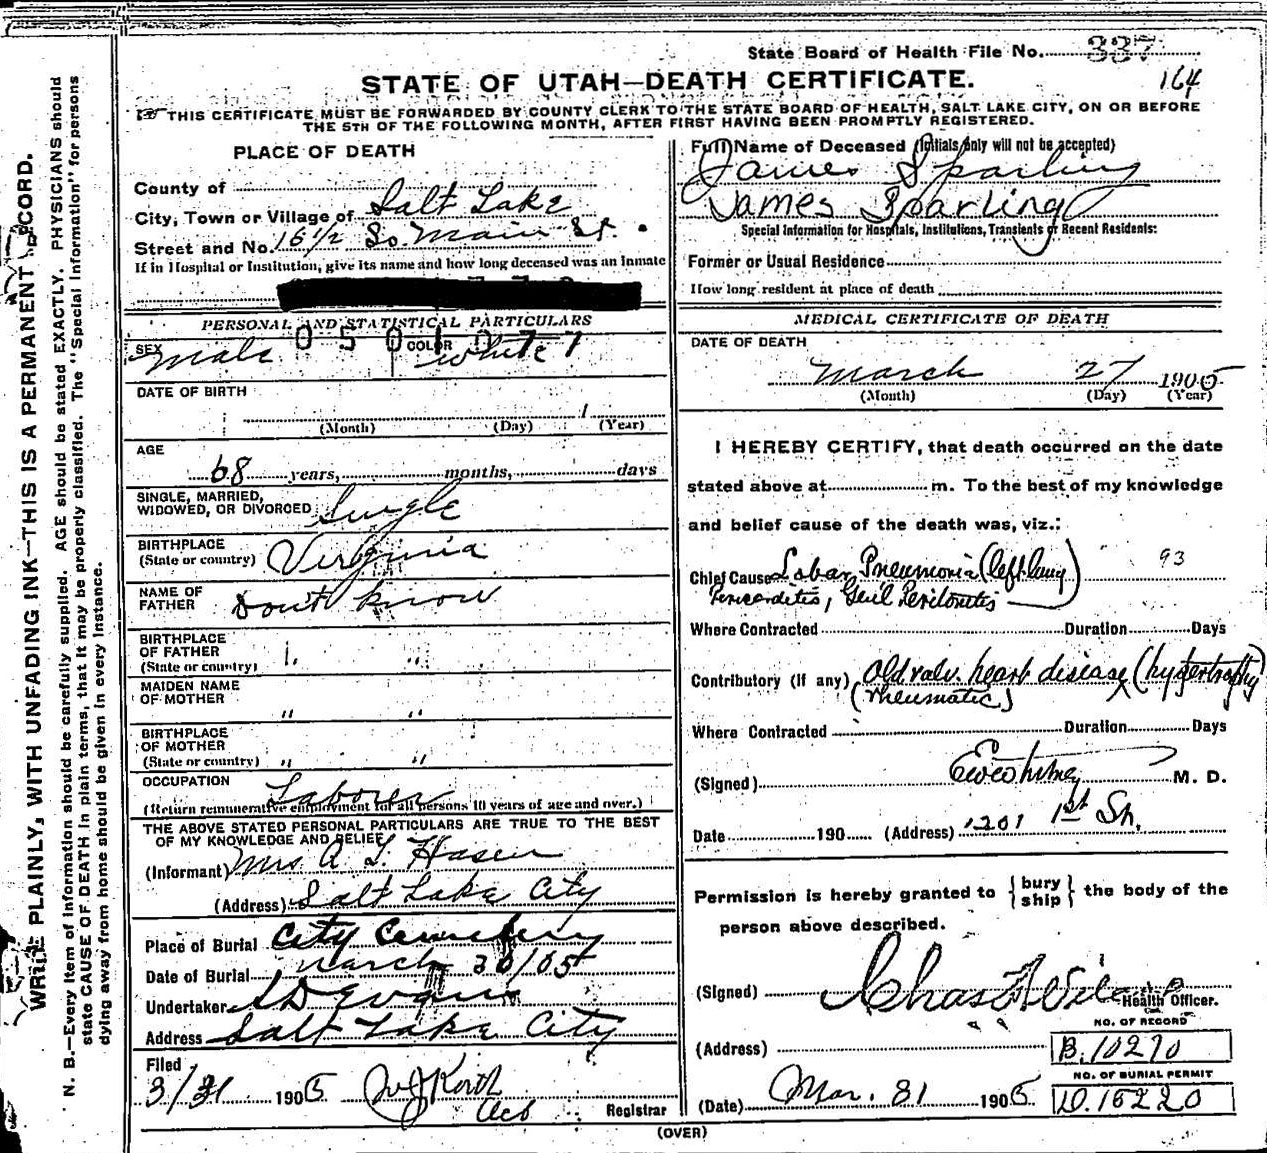 State Board of Health File No. 337
164
STATE OF UTAH—DEATH CERTIFICATE.
THIS CERTIFICATE MUST BE FORWARDED BY COUNTY CLERK TO THE STATE BOARD OF HEALTH, SALT LAKE CITY, ON OR BEFORE
THE 5TH OF THE FOLLOWING MONTH, AFTER FIRST HAVING BEEN PROMPTLY REGISTERED.
WRITE PLAINLY, WITH UNFADING INK—THIS IS A PERMANENT RECORD.
N. B.—Every item of information should be carefully supplied. AGE should be stated EXACTLY. PHYSICIANS should
state CAUSE OF DEATH in plain terms, that it may be properly classified. The "Special Information" for persons
dying away from home should be given in every instance.
PLACE OF DEATH
County of
City, Town or Village of Salt Lake
Street and No. 16 1/2 So. Main St.
If in Hospital or Institution, give its name and how long deceased was an Inmate
PERSONAL AND STATISTICAL PARTICULARS
0501077
SEX Male COLOR White
DATE OF BIRTH
1
(Month) (Day) (Year)
AGE
68 years, months, days
SINGLE, MARRIED,
WIDOWED, OR DIVORCED Single
BIRTHPLACE
(State or country) Virginia
NAME OF
FATHER Dont know
BIRTHPLACE
OF FATHER
(State or country) " "
MAIDEN NAME
OF MOTHER " "
BIRTHPLACE
OF MOTHER
(State or country) " "
OCCUPATION Laborer
(Return remunerative employment for all persons 10 years of age and over.)
THE ABOVE STATED PERSONAL PARTICULARS ARE TRUE TO THE BEST
OF MY KNOWLEDGE AND BELIEF
(Informant) Mrs A
(Address) Salt Lake City
Place of Burial City Cemetery
Date of Burial March 30/05
Undertaker S D Evans
Address Salt Lake City
Filed
3/31 1905
Registrar
Full Name of Deceased (Initials only will not be accepted)
James Sparling
James Sparling
Special Information for Hospitals, Institutions, Transients or Recent Residents:
Former or Usual Residence
How long resident at place of death
MEDICAL CERTIFICATE OF DEATH
DATE OF DEATH
March 27 1905
(Month) (Day) (Year)
I HEREBY CERTIFY, that death occurred on the date
stated above at m. To the best of my knowledge
and belief cause of the death was, viz.:
Chief Cause Lobar Pneumonia (left lung) 93
Pericarditis, Genl Peritonitis
Where Contracted Duration Days
Contributory (If any) Old valv. heart disease (hypertrophy)
(rheumatic)
Where Contracted Duration Days
(Signed) M. D.
Date 190 (Address) 1201 1st St.
Permission is hereby granted to { bury ship } the body of the
person above described.
(Signed) Chas
Health Officer.
NO. OF RECORD
(Address) B.10270
NO. OF BURIAL PERMIT
(Date) Mar. 31 1905 D.15220
(OVER)